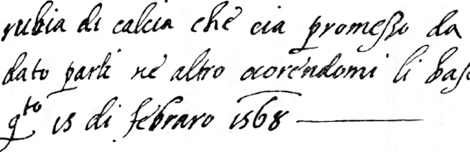 rubia di calcia che cia promesso da
dato parti ne altro ocorendomi li basc
q.to 15 di febraro 1568